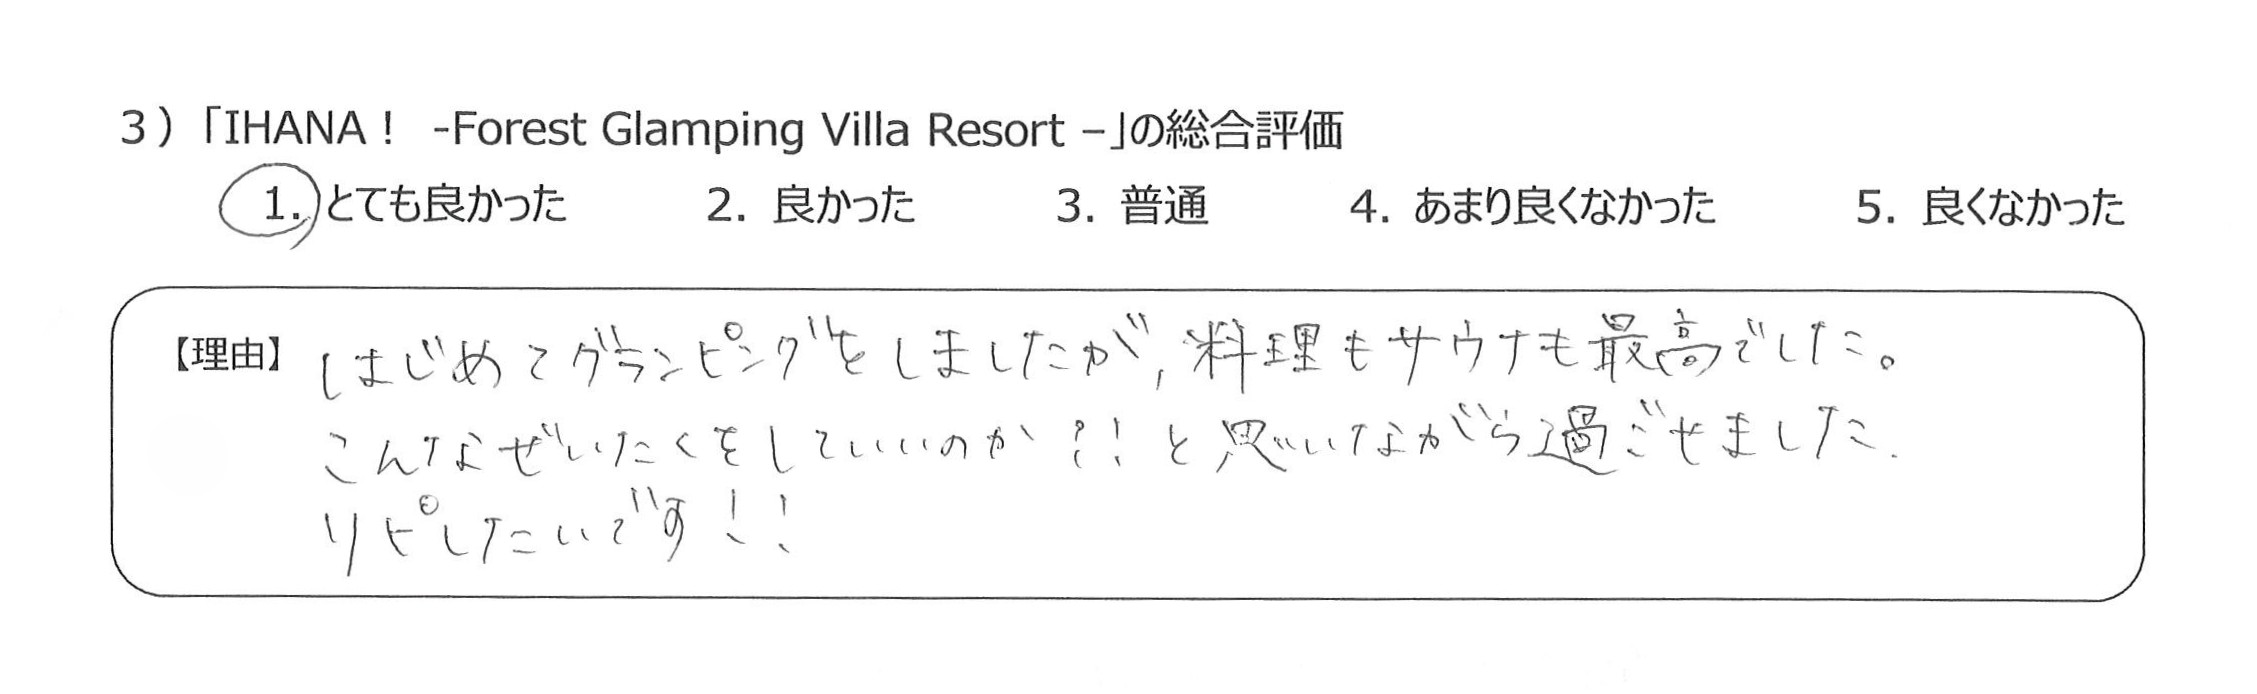 3）「IHANA！ -Forest Glamping Villa Resort –」の総合評価
1. とても良かった 2. 良かった 3. 普通 4. あまり良くなかった 5. 良くなかった
【理由】はじめてグランピングをしましたが、料理もサウナも最高でした。
こんなぜいたくをしていいのか?!と思いながら過ごせました.
リピしたいです!!